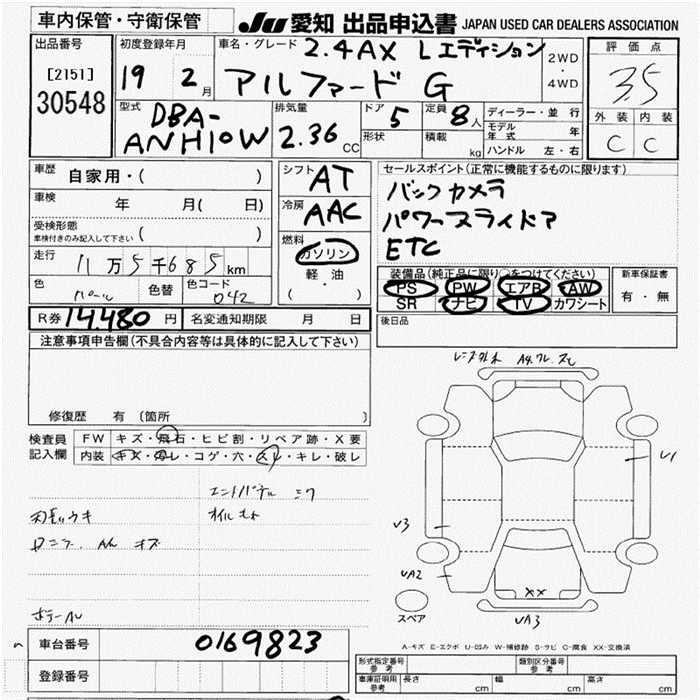 車内保管・守衛保管
JU 愛知 出品申込書 JAPAN USED CAR DEALERS ASSOCIATION
出品番号
[2151]
30548
初度登録年月
19 2月
車名・グレード
2.4AX Lエディション
アルファード G
2WD
・
4WD
評価点
3.5
外装 内装
C C
型式
DBA-
ANH10W
排気量
2.36 CC
ドア 5
形状
定員 8人
積載 kg
ディーラー・並行
モデル年式 年
ハンドル 左・右
車歴 自家用・( )
車検 年 月( 日)
受検形態
車検付きのみ記入して下さい ( )
走行 11万5千685km
色 パール 色替 色コード 042
シフト AT
冷房 AAC
燃料
ガソリン
軽油
( ・ )
セールスポイント(正常に機能するものに限ります)
バックカメラ
パワースライドドア
ETC
装備品(純正品に限り○をつけてください)
PS PW エアB AW
SR ナビ TV カワシート
新車保証書
有・無
R券 14,480 円 名変通知期限 月 日
後日品
注意事項申告欄(不具合内容等は具体的に記入して下さい)
修復歴 有 (箇所 )
検査員
記入欄
FW キズ・飛石・ヒビ割・リペア跡・X要
内装 キズ・汚レ・コゲ・穴・スレ・キレ・破レ
オイルもれ
U1
U3
UA2
XX
UA3
スペア
車台番号 0169823
登録番号
A-キズ E-エクボ U-凹み W-補修跡 S-サビ C-腐食 XX-交換済
形式指定番号
参考
類別区分番号
参考
車庫証明用
参考
長さ cm 幅 cm 高さ cm